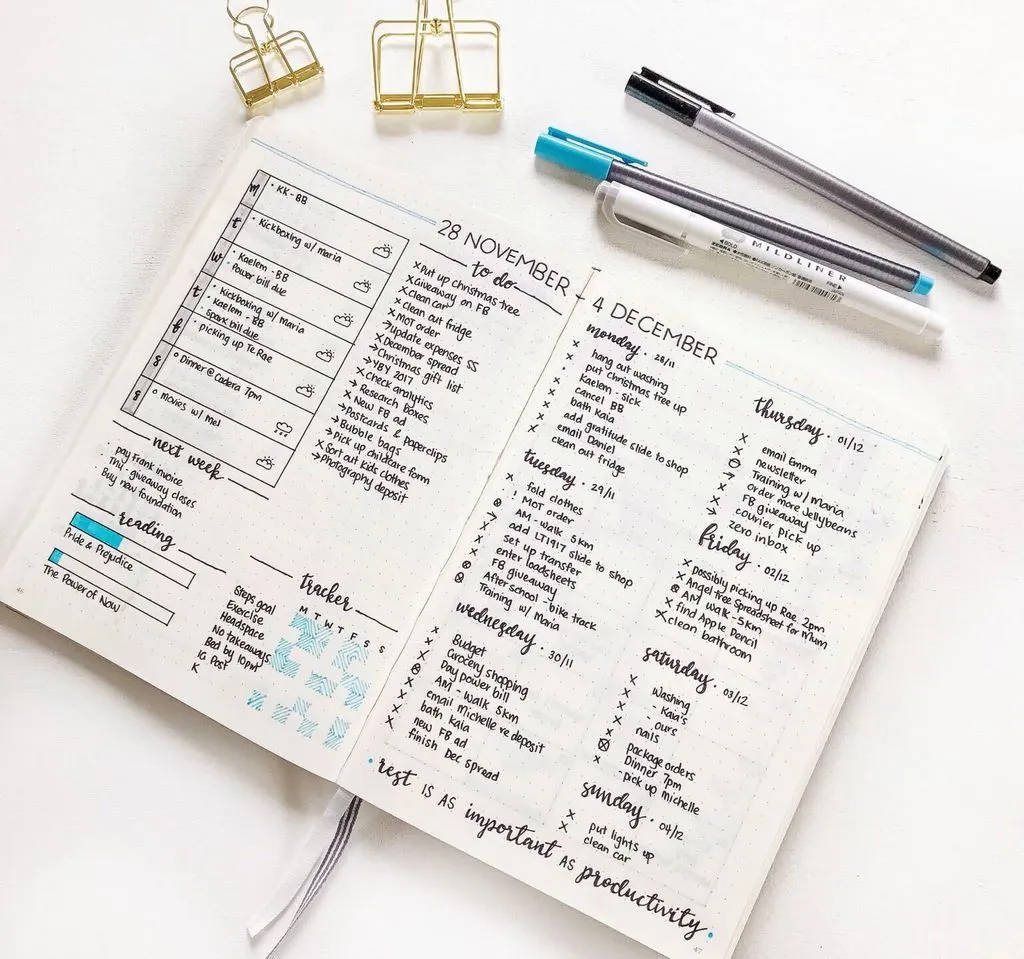 28 NOVEMBER -
m
• KK - BB
t
• Kickboxing w/ maria
w
• Kaelem - BB
• Power bill due
t
• Kickboxing w/ Maria
• Kaelem - BB
• Spark bill due
f
• picking up Te Rae
s
o Dinner @ Cadera 7pm
s
o movies w/ mel
to do
x Put up christmas tree
x Giveaway on FB
x Clean car
x Clean out fridge
x MOT order
> update expenses SS
x December spread
> Christmas gift list
> YBY 2017
x Check analytics
> Research Boxes
x New FB ad
> Postcards & paperclips
> Bubble bags
x Pick up childcare form
x Sort out kids clothes
> Photography deposit
next week
• pay Frank invoice
• Thu - giveaway closes
• Buy new foundation
reading
Pride & Prejudice
The Power of Now
tracker
M T W T F S S
Steps goal
Exercise
Headspace
No takeaways
Bed by 10pm
IG Post
K
46
4 DECEMBER
monday • 28/11
hang out washing
put Christmas tree up
Kaelem - sick
cancel BB
bath Kaia
add gratitude slide to shop
email Daniel
clean out fridge
tuesday • 29/11
fold clothes
! MOT order
AM - walk 5km
add LT1917 slide to shop
set up transfer
enter loadsheets
FB giveaway
After-school - bike track
Training w/ Maria
wednesday • 30/11
Budget
Grocery shopping
Day power bill
AM - walk 5km
email Michelle re deposit
bath Kaia
new FB ad
finish Dec Spread
thursday • 01/12
email Emma
newsletter
Training w/ Maria
order more Jellybeans
FB giveaway
courier pick up
zero inbox
friday • 02/12
x possibly picking up Rae 2pm
x Angel Tree Spreadsheet for Mum
AM walk - 5km
x find Apple Pencil
x clean bathroom
saturday • 03/12
x washing
- Kaia's
- ours
x nails
package orders
Dinner 7pm
- pick up michelle
sunday • 04/12
x put lights up
x clean car
rest IS AS important AS productivity.
47
MILDLINER